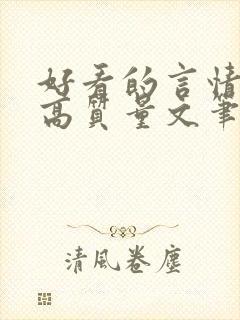 好看的言情
高質量文筆
清風卷塵